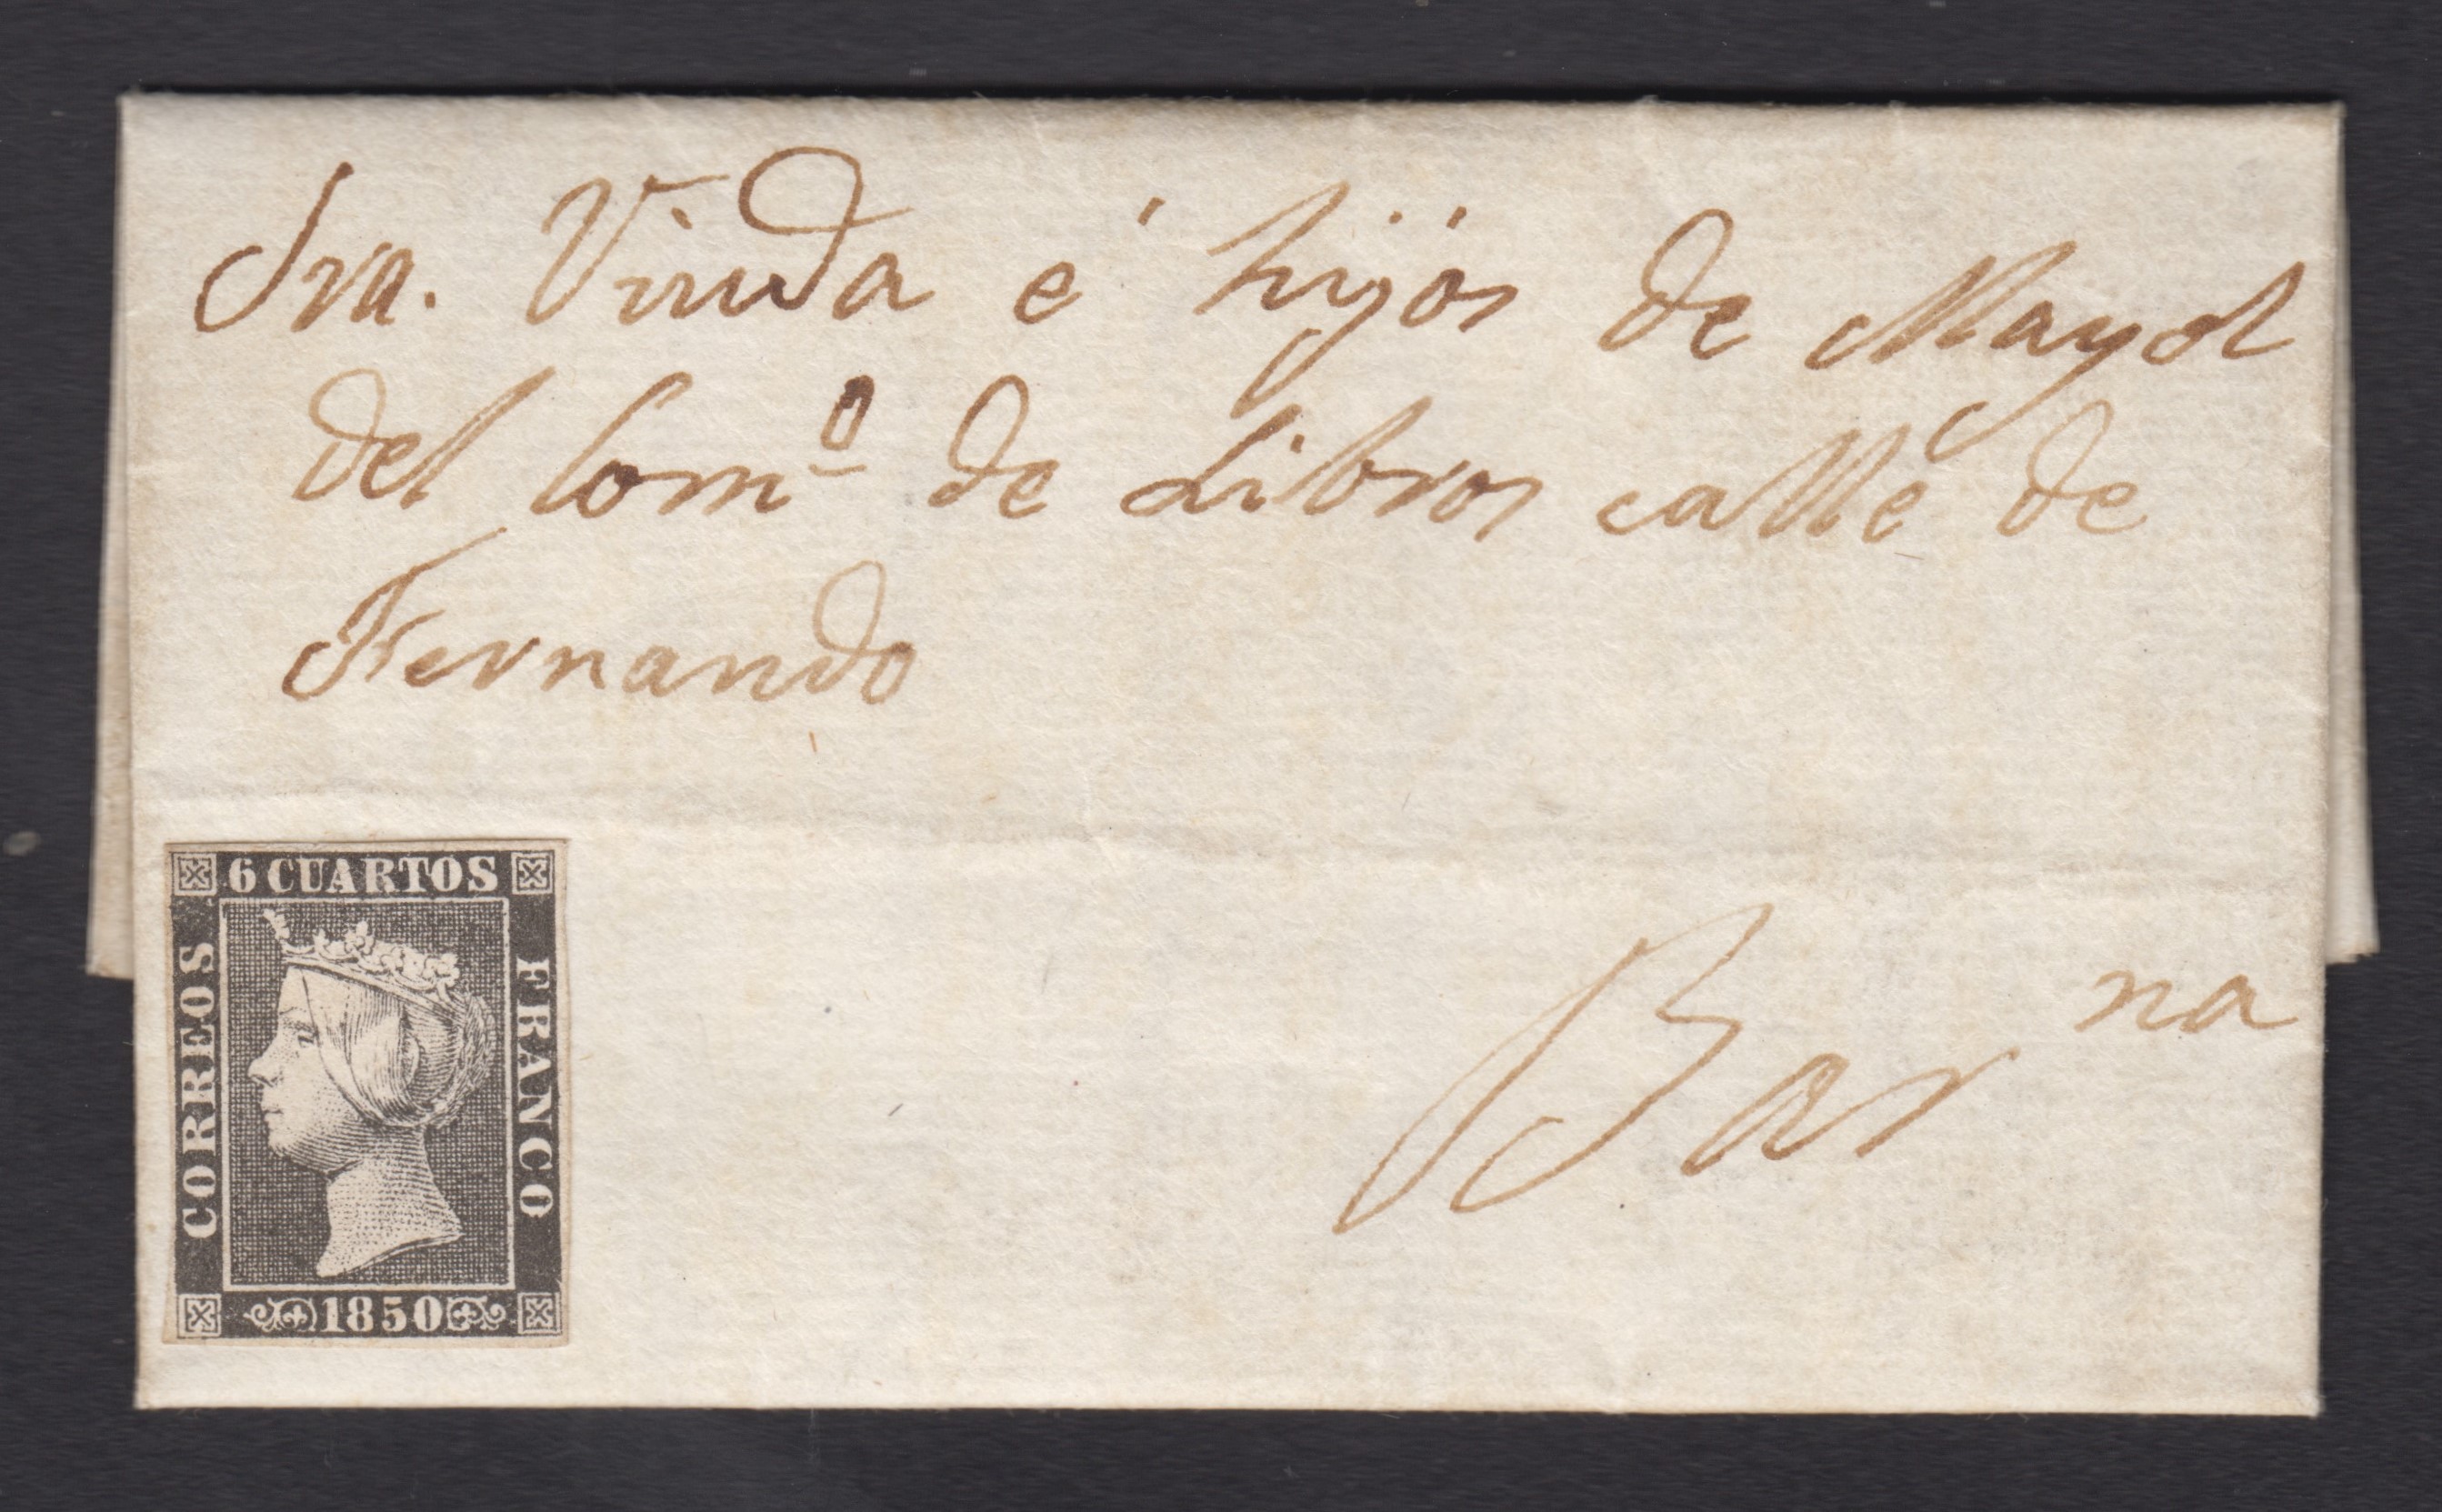 Sra. Viuda é hijos de Mayol
del Comº de Libros calle de
Fernando
Barna
6 CUARTOS
CORREOS
FRANCO
1850